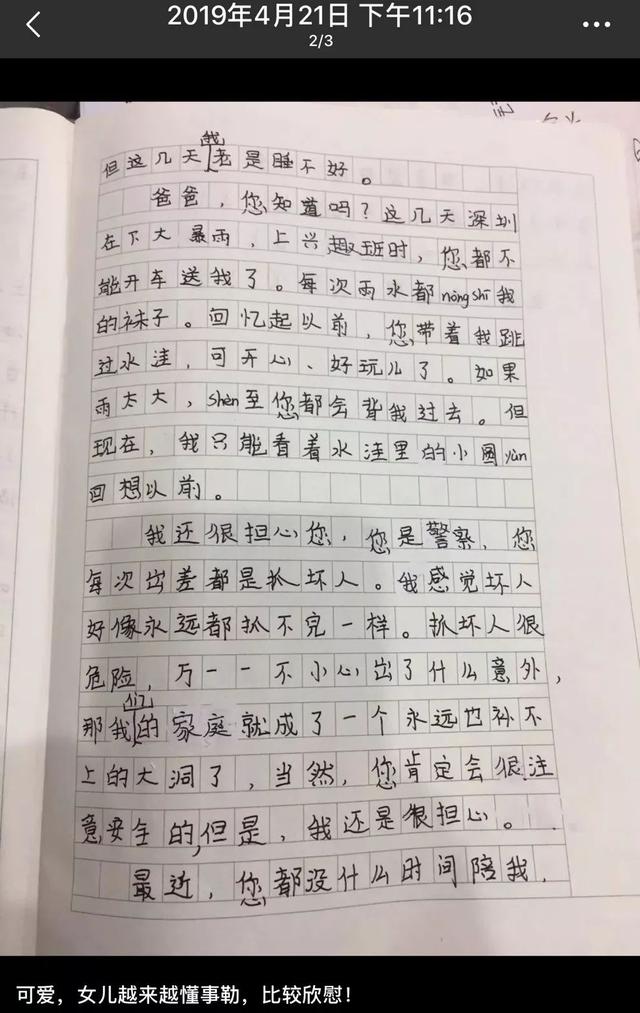 2019年4月21日 下午11:16
2/3
但这几天我老是睡不好。
爸爸，您知道吗？这几天深圳
在下大暴雨，上兴趣班时，您都不
能开车送我了。每次雨水都nòng shī我
的袜子。回忆起以前，您带着我跳
过水洼，可开心、好玩儿了。如果
雨太大，shèn至您都会背我过去。但
现在，我只能看着水洼里的小圆yùn
回想以前。
我还很担心您，您是警察，您
每次出差都是抓坏人。我感觉坏人
好像永远都抓不完一样。抓坏人很
危险，万一一不小心出了什么意外，
那我们的家庭就成了一个永远也补不
上的大洞了，当然，您肯定会很注
意安全的，但是，我还是很担心。
最近，您都没什么时间陪我，
可爱，女儿越来越懂事勒，比较欣慰！